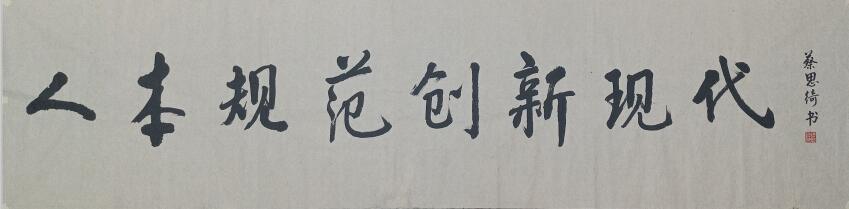 人本规范创新现代
蔡思绮书